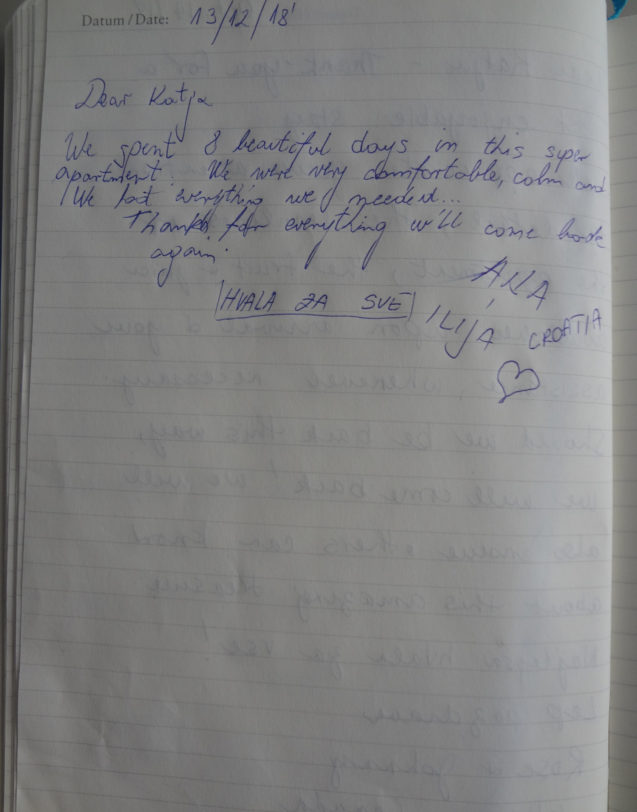 Datum / Date: 13/12/18'
Dear Katja
We spent 8 beautiful days in this super
apartment. We were very comfortable, calm and
We had everything we needed...
Thanks for everything we'll come back
again.
ANA
HVALA ZA SVE
I ILIJA
CROATIA